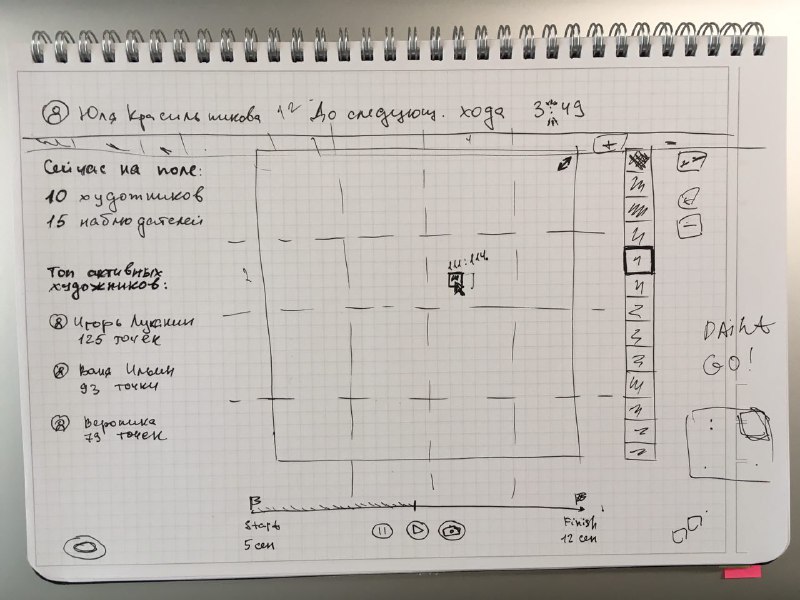 Юля Красильникова До следующ. хода 3 49
Сейчас на поле:
10 художников
15 наблюдателей
Топ активных
художников:
Игорь Луканин
125 точек
Ваня Ильин
93 точки
Вероника
79 точек
111:114
+
-
PAINT
GO!
Start
5 сен
Finish
12 сен